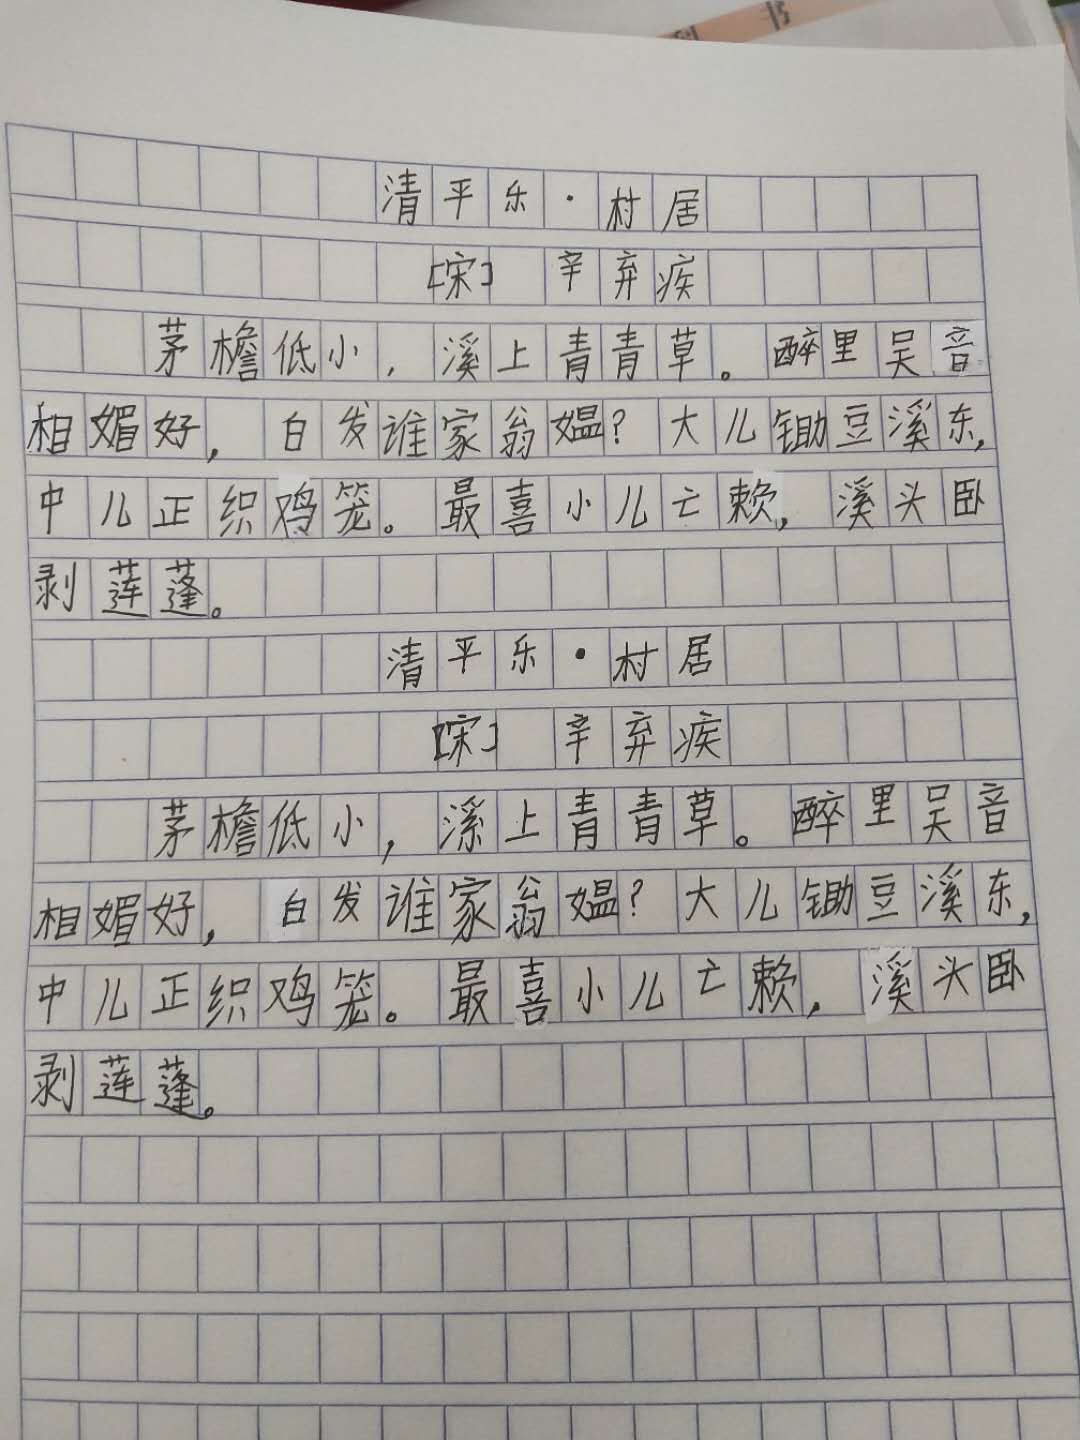 书
清平乐·村居
[宋] 辛弃疾
茅檐低小，溪上青青草。醉里吴音
相媚好，白发谁家翁媪？大儿锄豆溪东，
中儿正织鸡笼。最喜小儿亡赖，溪头卧
剥莲蓬。
清平乐·村居
[宋] 辛弃疾
茅檐低小，溪上青青草。醉里吴音
相媚好，白发谁家翁媪？大儿锄豆溪东，
中儿正织鸡笼。最喜小儿亡赖，溪头卧
剥莲蓬。